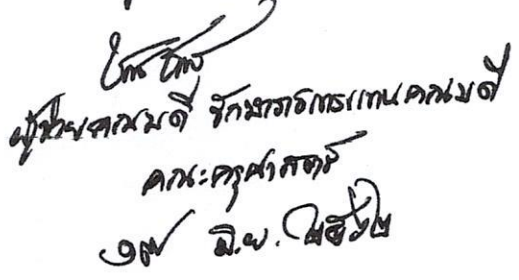 ผู้ช่วยคณบดี รักษาราชการแทนคณบดี
คณะครุศาสตร์
๑๗ มิ.ย. ๒๕๖๒